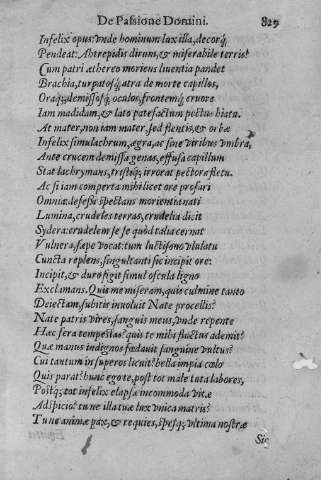 De Passione Domini. 829
Infelix opus: vnde hominum lux illa, decorq́;
Pendeat: Ah trepidis dirum, & miserabile terris!
Cum patri æthereo moriens liuentia pandet
Brachia, turpatosq́; atra de morte capillos,
Oraq́; demissosq́; oculos, frontemq́; cruore
Iam madidam, & lato patefactum pectus hiatu.
At mater, non iam mater, sed flentis, & orbæ
Infelix simulachrum, ægra, ac sine viribus vmbra,
Ante crucem demissa genas, effusa capillum
Stat lachrymans, tristiq́; irrorat pectora fletu.
Ac si iam comperta mihi licet ore profari
Omnia: defessi spectans morientia nati
Lumina, crudeles terras, crudelia dicit
Sydera: crudelem se se quòd talia cernat
Vulnera, sæpe vocat: tum luctisono vlulatu
Cuncta replens, singultanti sic incipit ore:
Incipit, & duro figit simul oscula ligno
Exclamans. Quis me miseram, quis culmine tanto
Deiectam, subitis inuoluit Nate procellis?
Nate patris vires, sanguis meus, vnde repente
Hæc fera tempestas? quis te mihi fluctus ademit?
Quæ manus indignos fœdauit sanguine vultus?
Cui tantum in superos licuit? bella impia cœlo
Quis parat? hunc ego te, post tot male tuta labores,
Postq́; tot infelix elapsa incommoda vitæ
Adspicio? tu ne illa tuæ lux vnica matris?
Tu ne animæ pax, & requies, spesq́; vltima nostræ
Sic